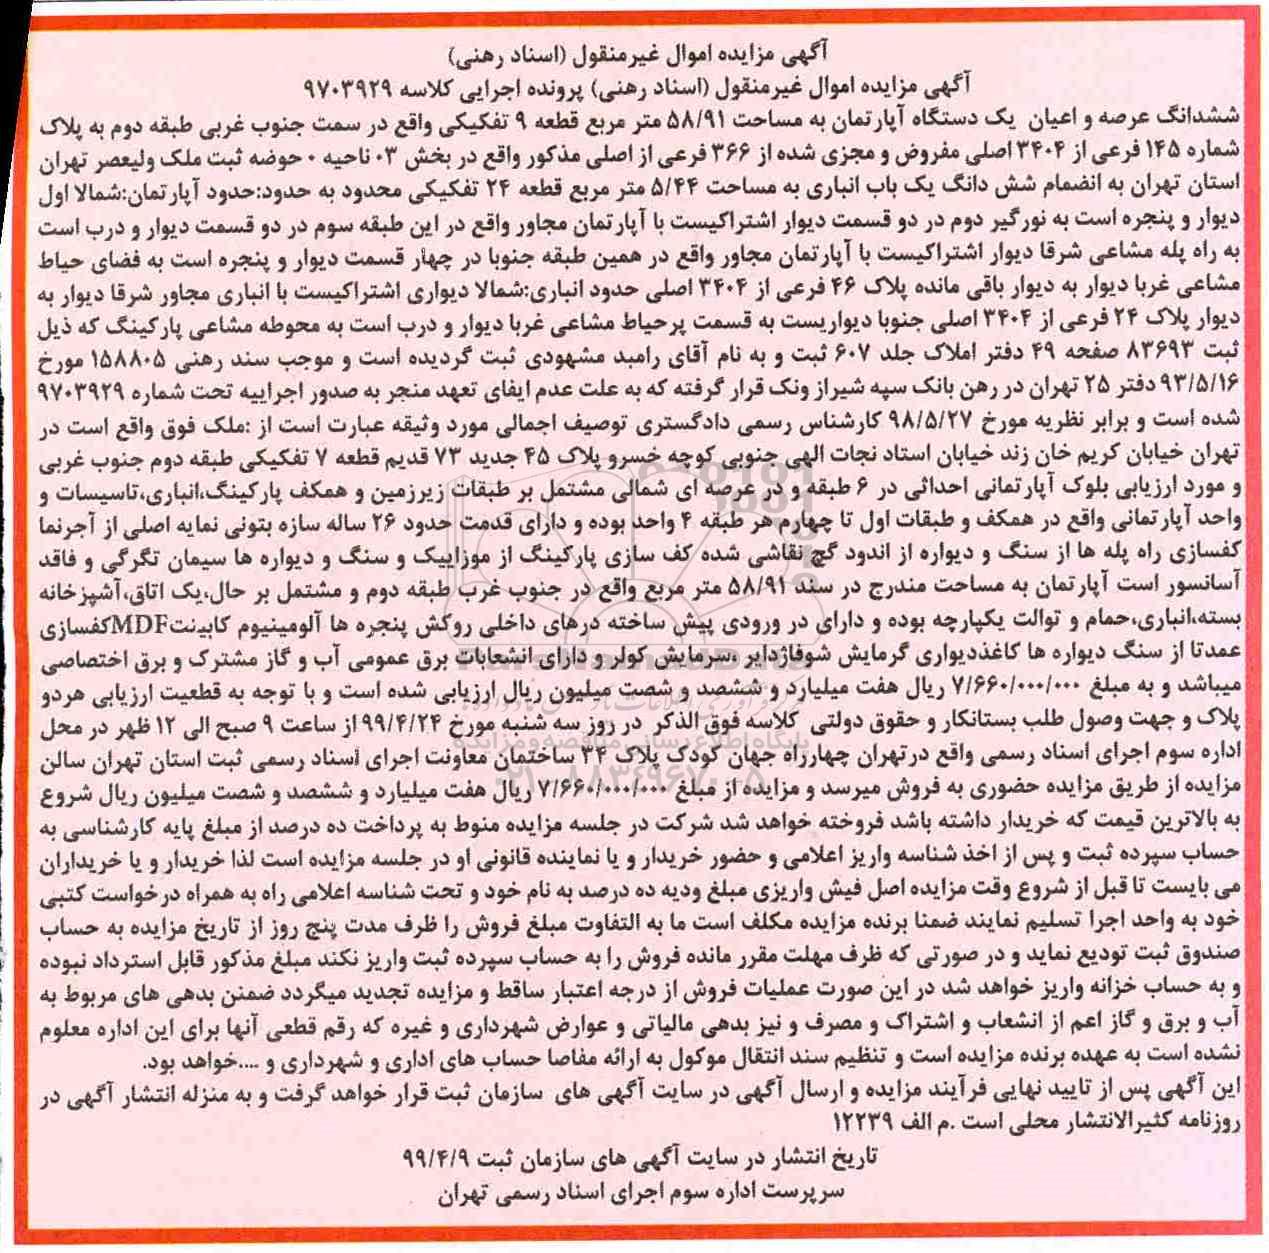 آگهی مزایده اموال غیرمنقول (اسناد رهنی)
آگهی مزایده اموال غیرمنقول (اسناد رهنی) پرونده اجرایی کلاسه ۹۷۰۳۹۲۹
ششدانگ عرصه و اعیان یک دستگاه آپارتمان به مساحت ۵۸/۹۱ متر مربع قطعه ۹ تفکیکی واقع در سمت جنوب غربی طبقه دوم به پلاک
شماره ۱۴۵ فرعی از ۳۴۰۴ اصلی مفروض و مجزی شده از ۳۶۶ فرعی از اصلی مذکور واقع در بخش ۰۳ ناحیه ۰ حوضه ثبت ملک ولیعصر تهران
استان تهران به انضمام شش دانگ یک باب انباری به مساحت ۵/۴۴ متر مربع قطعه ۲۴ تفکیکی محدود به حدود:حدود آپارتمان:شمالا اول
دیوار و پنجره است به نورگیر دوم در دو قسمت دیوار اشتراکیست با آپارتمان مجاور واقع در این طبقه سوم در دو قسمت دیوار و درب است
به راه پله مشاعی شرقا دیوار اشتراکیست با آپارتمان مجاور واقع در همین طبقه جنوبا در چهار قسمت دیوار و پنجره است به فضای حیاط
مشاعی غربا دیوار به دیوار باقی مانده پلاک ۴۶ فرعی از ۳۴۰۴ اصلی حدود انباری:شمالا دیواری اشتراکیست با انباری مجاور شرقا دیوار به
دیوار پلاک ۲۴ فرعی از ۳۴۰۴ اصلی جنوبا دیواریست به قسمت پرحیاط مشاعی غربا دیوار و درب است به محوطه مشاعی پارکینگ که ذیل
ثبت ۸۳۶۹۳ صفحه ۴۹ دفتر املاک جلد ۶۰۷ ثبت و به نام آقای رامبد مشهودی ثبت گردیده است و موجب سند رهنی ۱۵۸۸۰۵ مورخ
۹۳/۵/۱۶ دفتر ۲۵ تهران در رهن بانک سپه شیراز ونک قرار گرفته که به علت عدم ایفای تعهد منجر به صدور اجراییه تحت شماره ۹۷۰۳۹۲۹
شده است و برابر نظریه مورخ ۹۸/۵/۲۷ کارشناس رسمی دادگستری توصیف اجمالی مورد وثیقه عبارت است از :ملک فوق واقع است در
تهران خیابان کریم خان زند خیابان استاد نجات الهی جنوبی کوچه خسرو پلاک ۴۵ جدید ۷۳ قدیم قطعه ۷ تفکیکی طبقه دوم جنوب غربی
و مورد ارزیابی بلوک آپارتمانی احداثی در ۶ طبقه و در عرصه ای شمالی مشتمل بر طبقات زیرزمین و همکف پارکینگ،انباری،تاسیسات و
واحد آپارتمانی واقع در همکف و طبقات اول تا چهارم هر طبقه ۴ واحد بوده و دارای قدمت حدود ۲۶ ساله سازه بتونی نمایه اصلی از آجرنما
کفسازی راه پله ها از سنگ و دیواره از اندود گچ نقاشی شده کف سازی پارکینگ از موزاییک و سنگ و دیواره ها سیمان تگرگی و فاقد
آسانسور است آپارتمان به مساحت مندرج در سند ۵۸/۹۱ متر مربع واقع در جنوب غرب طبقه دوم و مشتمل بر حال،یک اتاق،آشپزخانه
بسته،انباری،حمام و توالت یکپارچه بوده و دارای در ورودی پیش ساخته درهای داخلی روکش پنجره ها آلومینیوم کابینتMDFکفسازی
عمدتا از سنگ دیواره ها کاغذدیواری گرمایش شوفاژدایر ،سرمایش کولر و دارای انشعابات برق عمومی آب و گاز مشترک و برق اختصاصی
میباشد و به مبلغ ۷/۶۶۰/۰۰۰/۰۰۰ ریال هفت میلیارد و ششصد و شصت میلیون ریال ارزیابی شده است و با توجه به قطعیت ارزیابی هردو
پلاک و جهت وصول طلب بستانکار و حقوق دولتی کلاسه فوق الذکر در روز سه شنبه مورخ ۹۹/۴/۲۴ از ساعت ۹ صبح الی ۱۲ ظهر در محل
اداره سوم اجرای اسناد رسمی واقع درتهران چهارراه جهان کودک پلاک ۳۴ ساختمان معاونت اجرای اسناد رسمی ثبت استان تهران سالن
مزایده از طریق مزایده حضوری به فروش میرسد و مزایده از مبلغ ۷/۶۶۰/۰۰۰/۰۰۰ ریال هفت میلیارد و ششصد و شصت میلیون ریال شروع
به بالاترین قیمت که خریدار داشته باشد فروخته خواهد شد شرکت در جلسه مزایده منوط به پرداخت ده درصد از مبلغ پایه کارشناسی به
حساب سپرده ثبت و پس از اخذ شناسه واریز اعلامی و حضور خریدار و یا نماینده قانونی او در جلسه مزایده است لذا خریدار و یا خریداران
می بایست تا قبل از شروع وقت مزایده اصل فیش واریزی مبلغ ودیه ده درصد به نام خود و تحت شناسه اعلامی راه به همراه درخواست کتبی
خود به واحد اجرا تسلیم نمایند ضمنا برنده مزایده مکلف است ما به التفاوت مبلغ فروش را ظرف مدت پنج روز از تاریخ مزایده به حساب
صندوق ثبت تودیع نماید و در صورتی که ظرف مهلت مقرر مانده فروش را به حساب سپرده ثبت واریز نکند مبلغ مذکور قابل استرداد نبوده
و به حساب خزانه واریز خواهد شد در این صورت عملیات فروش از درجه اعتبار ساقط و مزایده تجدید میگردد ضمنن بدهی های مربوط به
آب و برق و گاز اعم از انشعاب و اشتراک و مصرف و نیز بدهی مالیاتی و عوارض شهرداری و غیره که رقم قطعی آنها برای این اداره معلوم
نشده است به عهده برنده مزایده است و تنظیم سند انتقال موکول به ارائه مفاصا حساب های اداری و شهرداری و ....خواهد بود.
این آگهی پس از تایید نهایی فرآیند مزایده و ارسال آگهی در سایت آگهی های سازمان ثبت قرار خواهد گرفت و به منزله انتشار آگهی در
روزنامه کثیرالانتشار محلی است .م الف ۱۲۲۳۹
تاریخ انتشار در سایت آگهی های سازمان ثبت ۹۹/۴/۹
سرپرست اداره سوم اجرای اسناد رسمی تهران